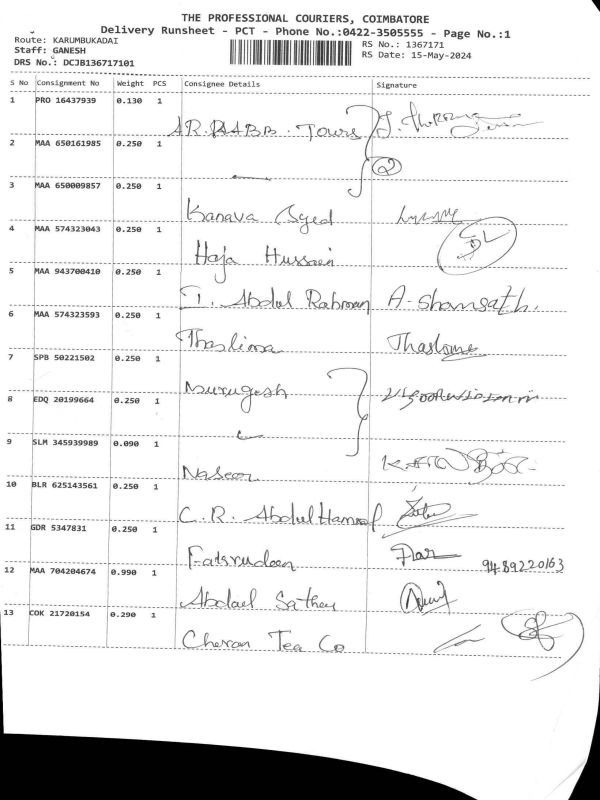 THE PROFESSIONAL COURIERS, COIMBATORE
Delivery Runsheet - PCT - Phone No.:0422-3505555 - Page No.:1
Route: KARUMBUKADAI
RS No.: 1367171
Staff: GANESH
RS Date: 15-May-2024
DRS No.: DCJB136717101
S No Consignment No Weight PCS Consignee Details Signature
1 PRO 16437939 0.130 1
Tours
2 MAA 650161985 0.250 1
2
3 MAA 650009857 0.250 1
Kanava Syed
4 MAA 574323043 0.250 1
Haja Hussain
5 MAA 943700410 0.250 1
T. Abdul Rahman A-Shamsath.
6 MAA 574323593 0.250 1
Thaslima
7 SPB 50221502 0.250 1
Murugesh
8 EDQ 20199664 0.250 1
9 SLM 345939989 0.090 1
Naseer
10 BLR 625143561 0.250 1
C. R. Abdul
11 GDR 5347831 0.250 1
9489220163
12 MAA 704204674 0.990 1
13 COK 21720154 0.290 1
Cheran Tea Co